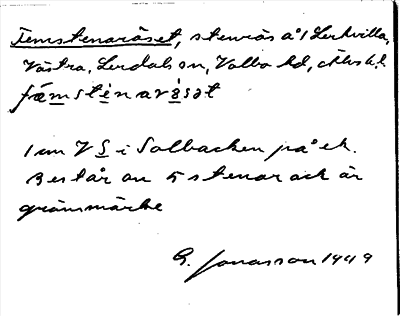 Femstenaröset, stenrös å 1 Lerkvilla,
Västra, Lerdals sn, Valbo hd, Älvsb. l.
fæmsténarö̀sət
1 km V S i Solbacken på ek.
Består av 5 stenar och är
gränsmärke
G. Jonasson 1949